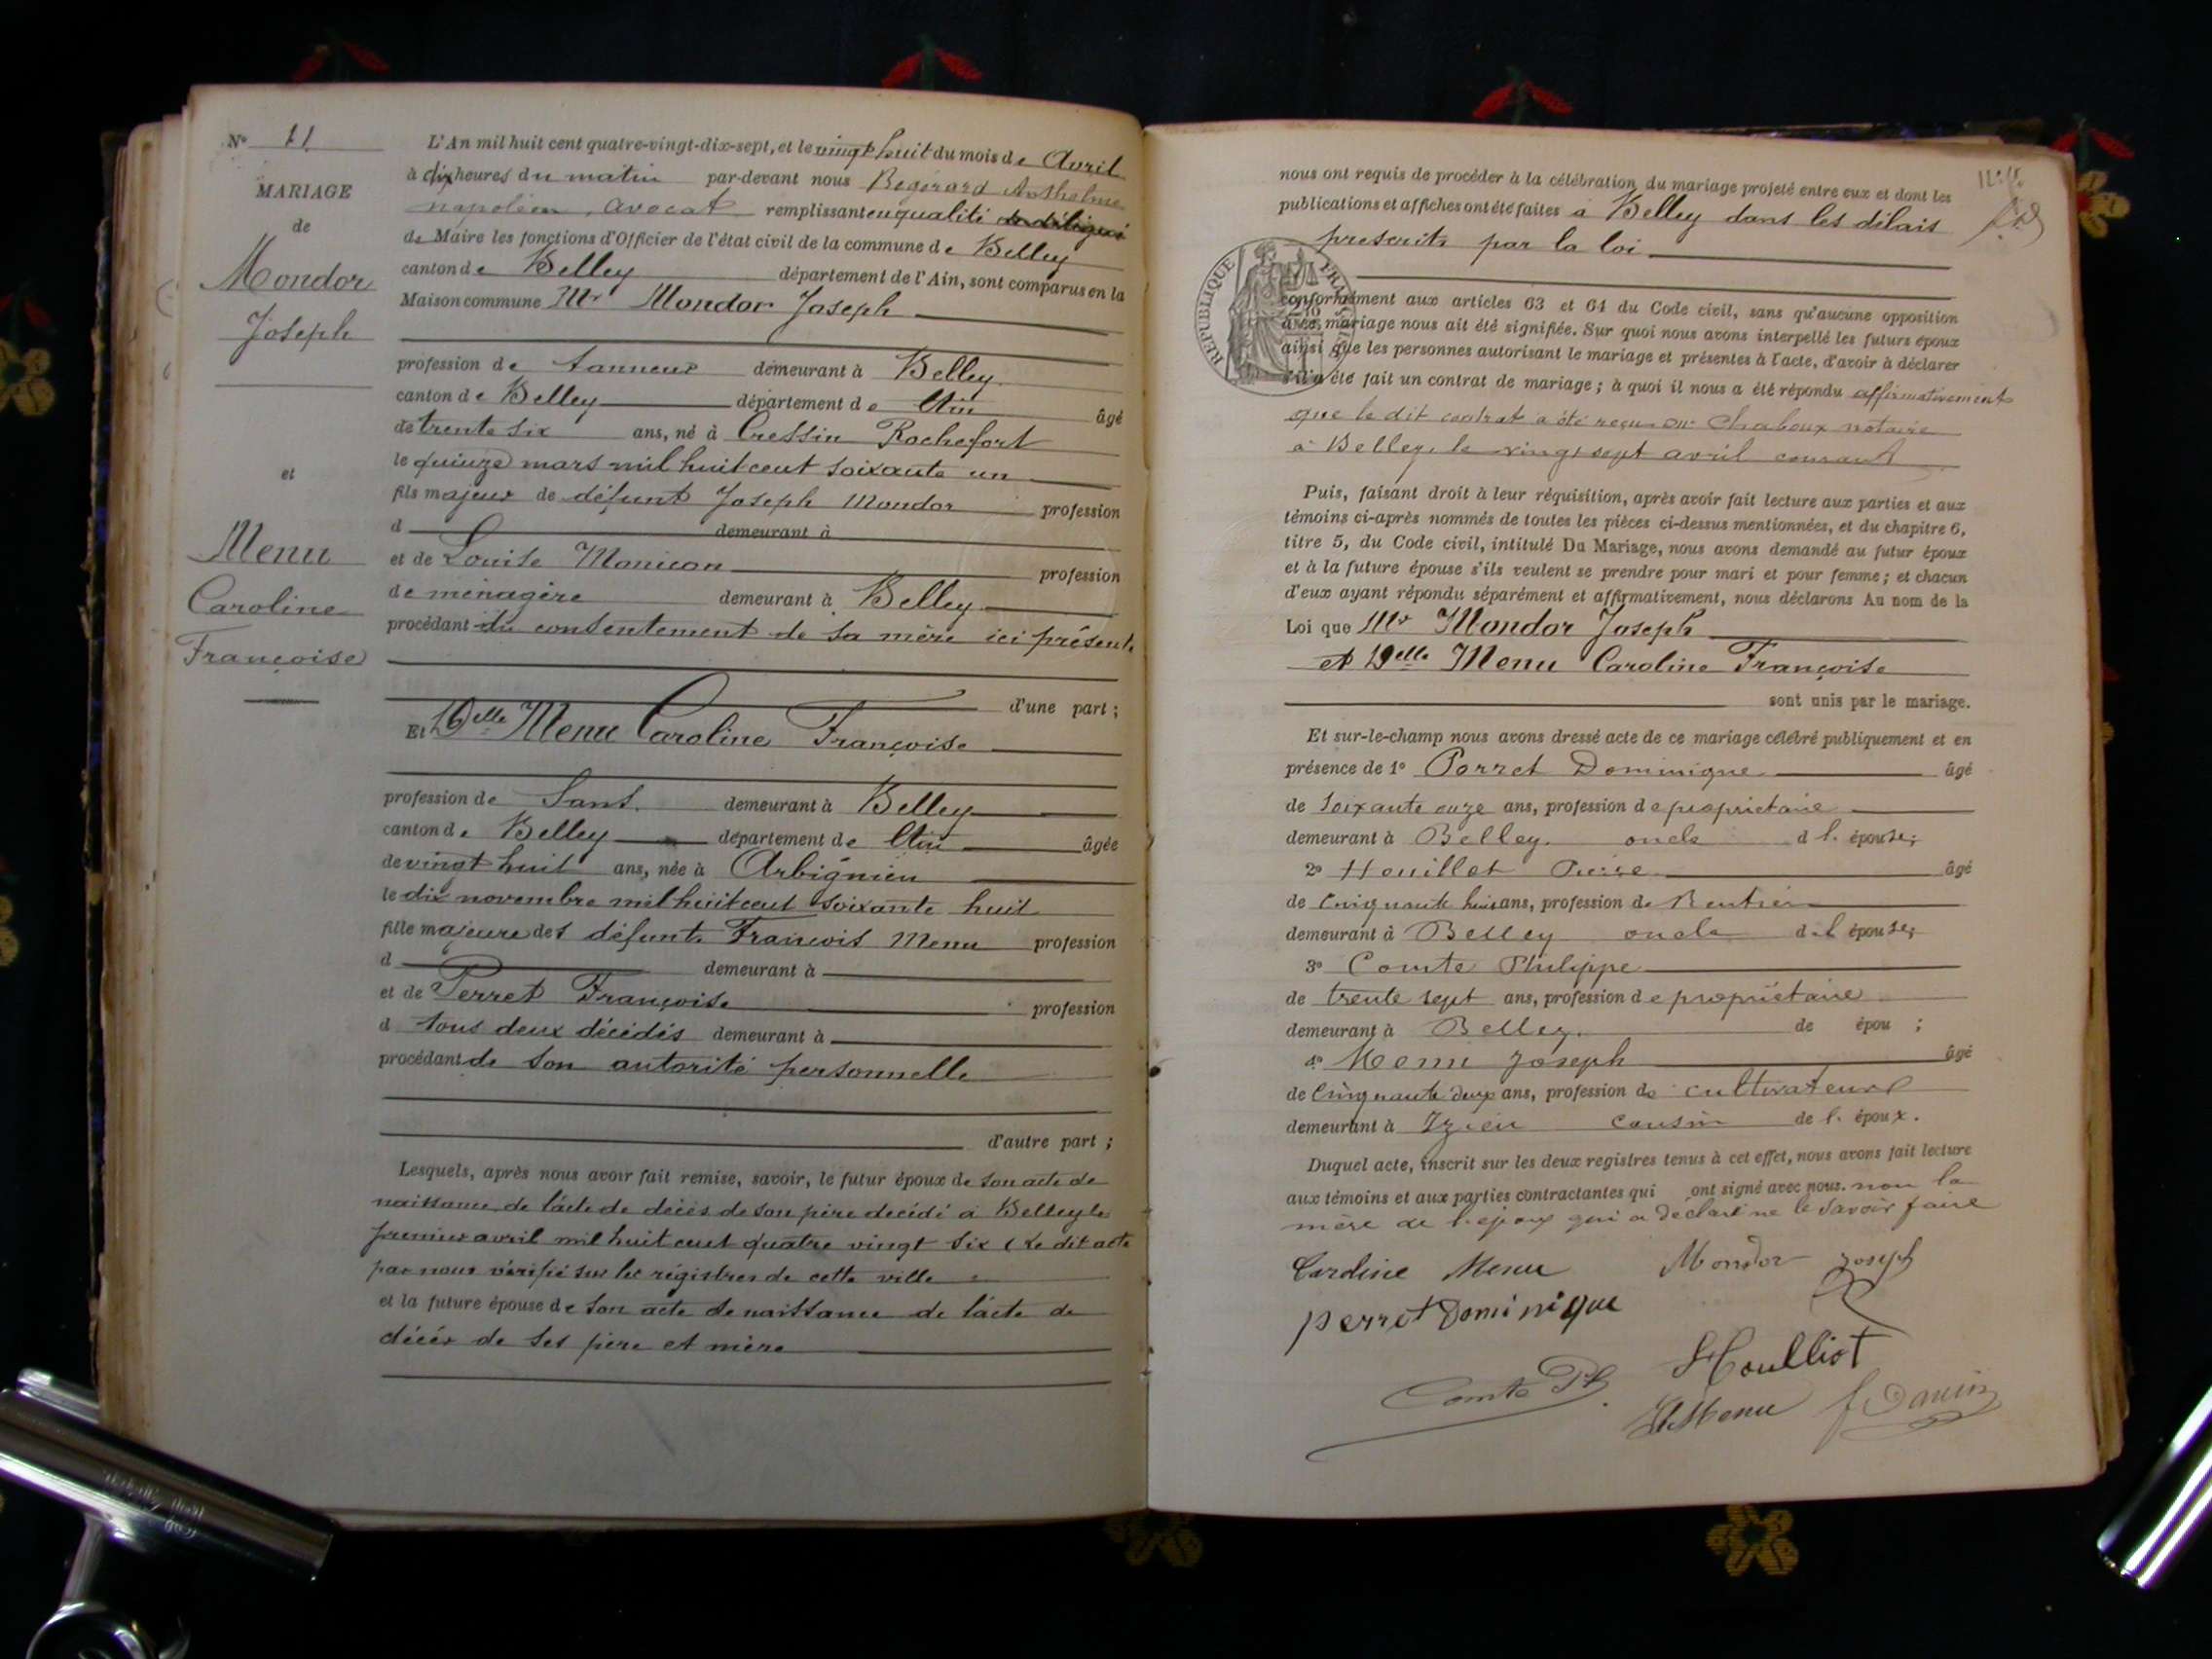 N° 11
MARIAGE
de
Mondor
Joseph
et
Menu
Caroline
Françoise
L'An mil huit cent quatre-vingt-dix-sept, et le vingt huit du mois de Avril
à dix heures du matin par-devant nous Anthelme
napoléon, avocat remplissant en qualité
de Maire les fonctions d'Officier de l'état civil de la commune de Belley
canton de Belley département de l'Ain, sont comparus en la
Maison commune Mr Mondor Joseph
profession de tanneur demeurant à Belley
canton de Belley département de Ain âgé
de trente six ans, né à Cressin Rochefort
le quinze mars mil huit cent soixante un
fils majeur de défunt Joseph Mondor profession
d demeurant à
et de Louise profession
de ménagère demeurant à Belley
procédant du consentement de sa mère ici présente
d'une part ;
Et Delle Menu Caroline Françoise
profession de Sans demeurant à Belley
canton de Belley département de Ain âgée
de vingt huit ans, née à Arbignieu
le dix novembre mil huit cent soixante huit
fille majeure des défunts François Menu profession
d demeurant à
et de Perret Françoise profession
d tous deux décédés demeurant à
procédant de son autorité personnelle
d'autre part ;
Lesquels, après nous avoir fait remise, savoir, le futur époux de son acte de
naissance, de l'acte de décès de son père décédé à Belley le
premier avril mil huit cent quatre vingt six (Le dit acte
par nous vérifié sur les régistres de cette ville
et la future épouse de son acte de naissance de l'acte de
décès de ses père et mère
nous ont requis de procéder à la célébration du mariage projeté entre eux et dont les
publications et affiches ont été faites à Belley dans les délais
prescrits par la loi
RÉPUBLIQUE FRANÇAISE
conformément aux articles 63 et 64 du Code civil, sans qu'aucune opposition
à ce mariage nous ait été signifiée. Sur quoi nous avons interpellé les futurs époux
ainsi que les personnes autorisant le mariage et présentes à l'acte, d'avoir à déclarer
s'il a été fait un contrat de mariage ; à quoi il nous a été répondu affirmativement
que le dit contrat a été reçu Me Chaboux notaire
à Belley, le vingt sept avril courant
Puis, faisant droit à leur réquisition, après avoir fait lecture aux parties et aux
témoins ci-après nommés de toutes les pièces ci-dessus mentionnées, et du chapitre 6,
titre 5, du Code civil, intitulé Du Mariage, nous avons demandé au futur époux
et à la future épouse s'ils veulent se prendre pour mari et pour femme ; et chacun
d'eux ayant répondu séparément et affirmativement, nous déclarons Au nom de la
Loi que Mr Mondor Joseph
et Delle Menu Caroline Françoise
sont unis par le mariage.
Et sur-le-champ nous avons dressé acte de ce mariage célébré publiquement et en
présence de 1° Perret Dominique âgé
de soixante onze ans, profession de propriétaire
demeurant à Belley oncle d l. épouse;
2° Houillot Pierre âgé
de Cinquante huit ans, profession de Rentier
demeurant à Belley oncle de l épouse;
3° Comte Philippe
de trente sept ans, profession de propriétaire
demeurant à Belley. de épou ;
4° Menu Joseph âgé
de Cinquante deux ans, profession de cultivateur
demeurant à Izieu cousin de l. époux.
Duquel acte, inscrit sur les deux registres tenus à cet effet, nous avons fait lecture
aux témoins et aux parties contractantes qui ont signé avec nous. non la
mère de l'époux qui a déclaré ne le savoir faire
Caroline Menu Mondor Joseph
perret Dominique
Houlliot
Comte Ph
Menu